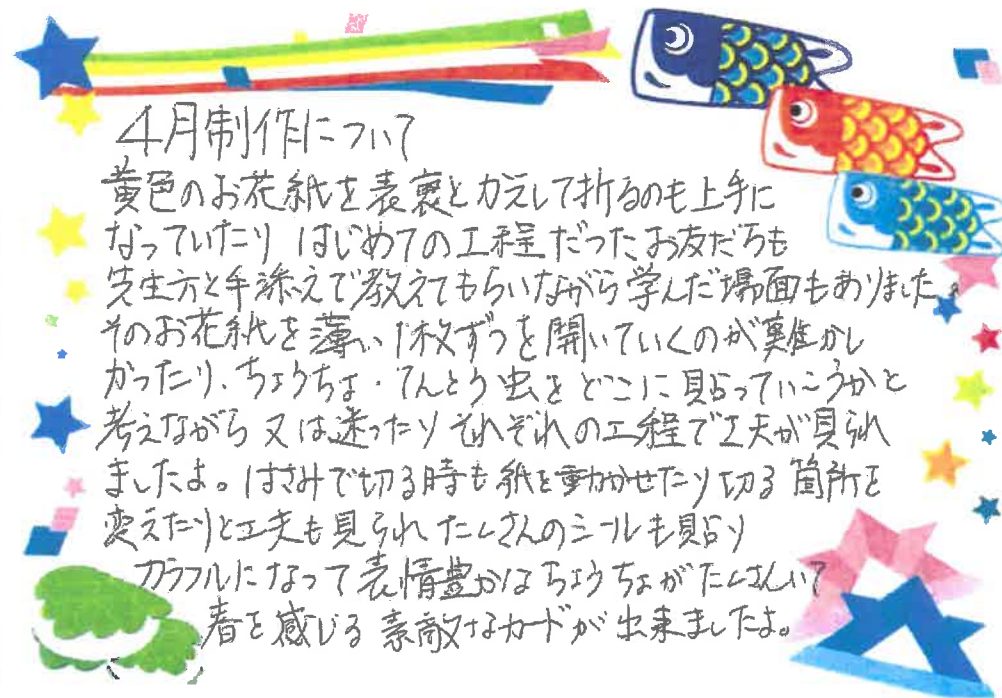 4月制作について
黄色のお花紙を表裏とかえして折るのも上手に
なっていたり はじめての工程だったお友だちも
先生方と手添えで教えてもらいながら学んだ場面もありました。
そのお花紙を薄い1枚ずつを開いていくのが難かし
かったり、ちょうちょ・てんとう虫をどこに貼っていこうかと
考えながら又は迷ったりそれぞれの工程で工夫が見られ
ましたよ。はさみで切る時も紙を動かせたり切る箇所を
変えたりと工夫も見られたくさんのシールも貼り
カラフルになって表情豊かなちょうちょがたくさんいて
春を感じる素敵なカードが出来ましたよ。